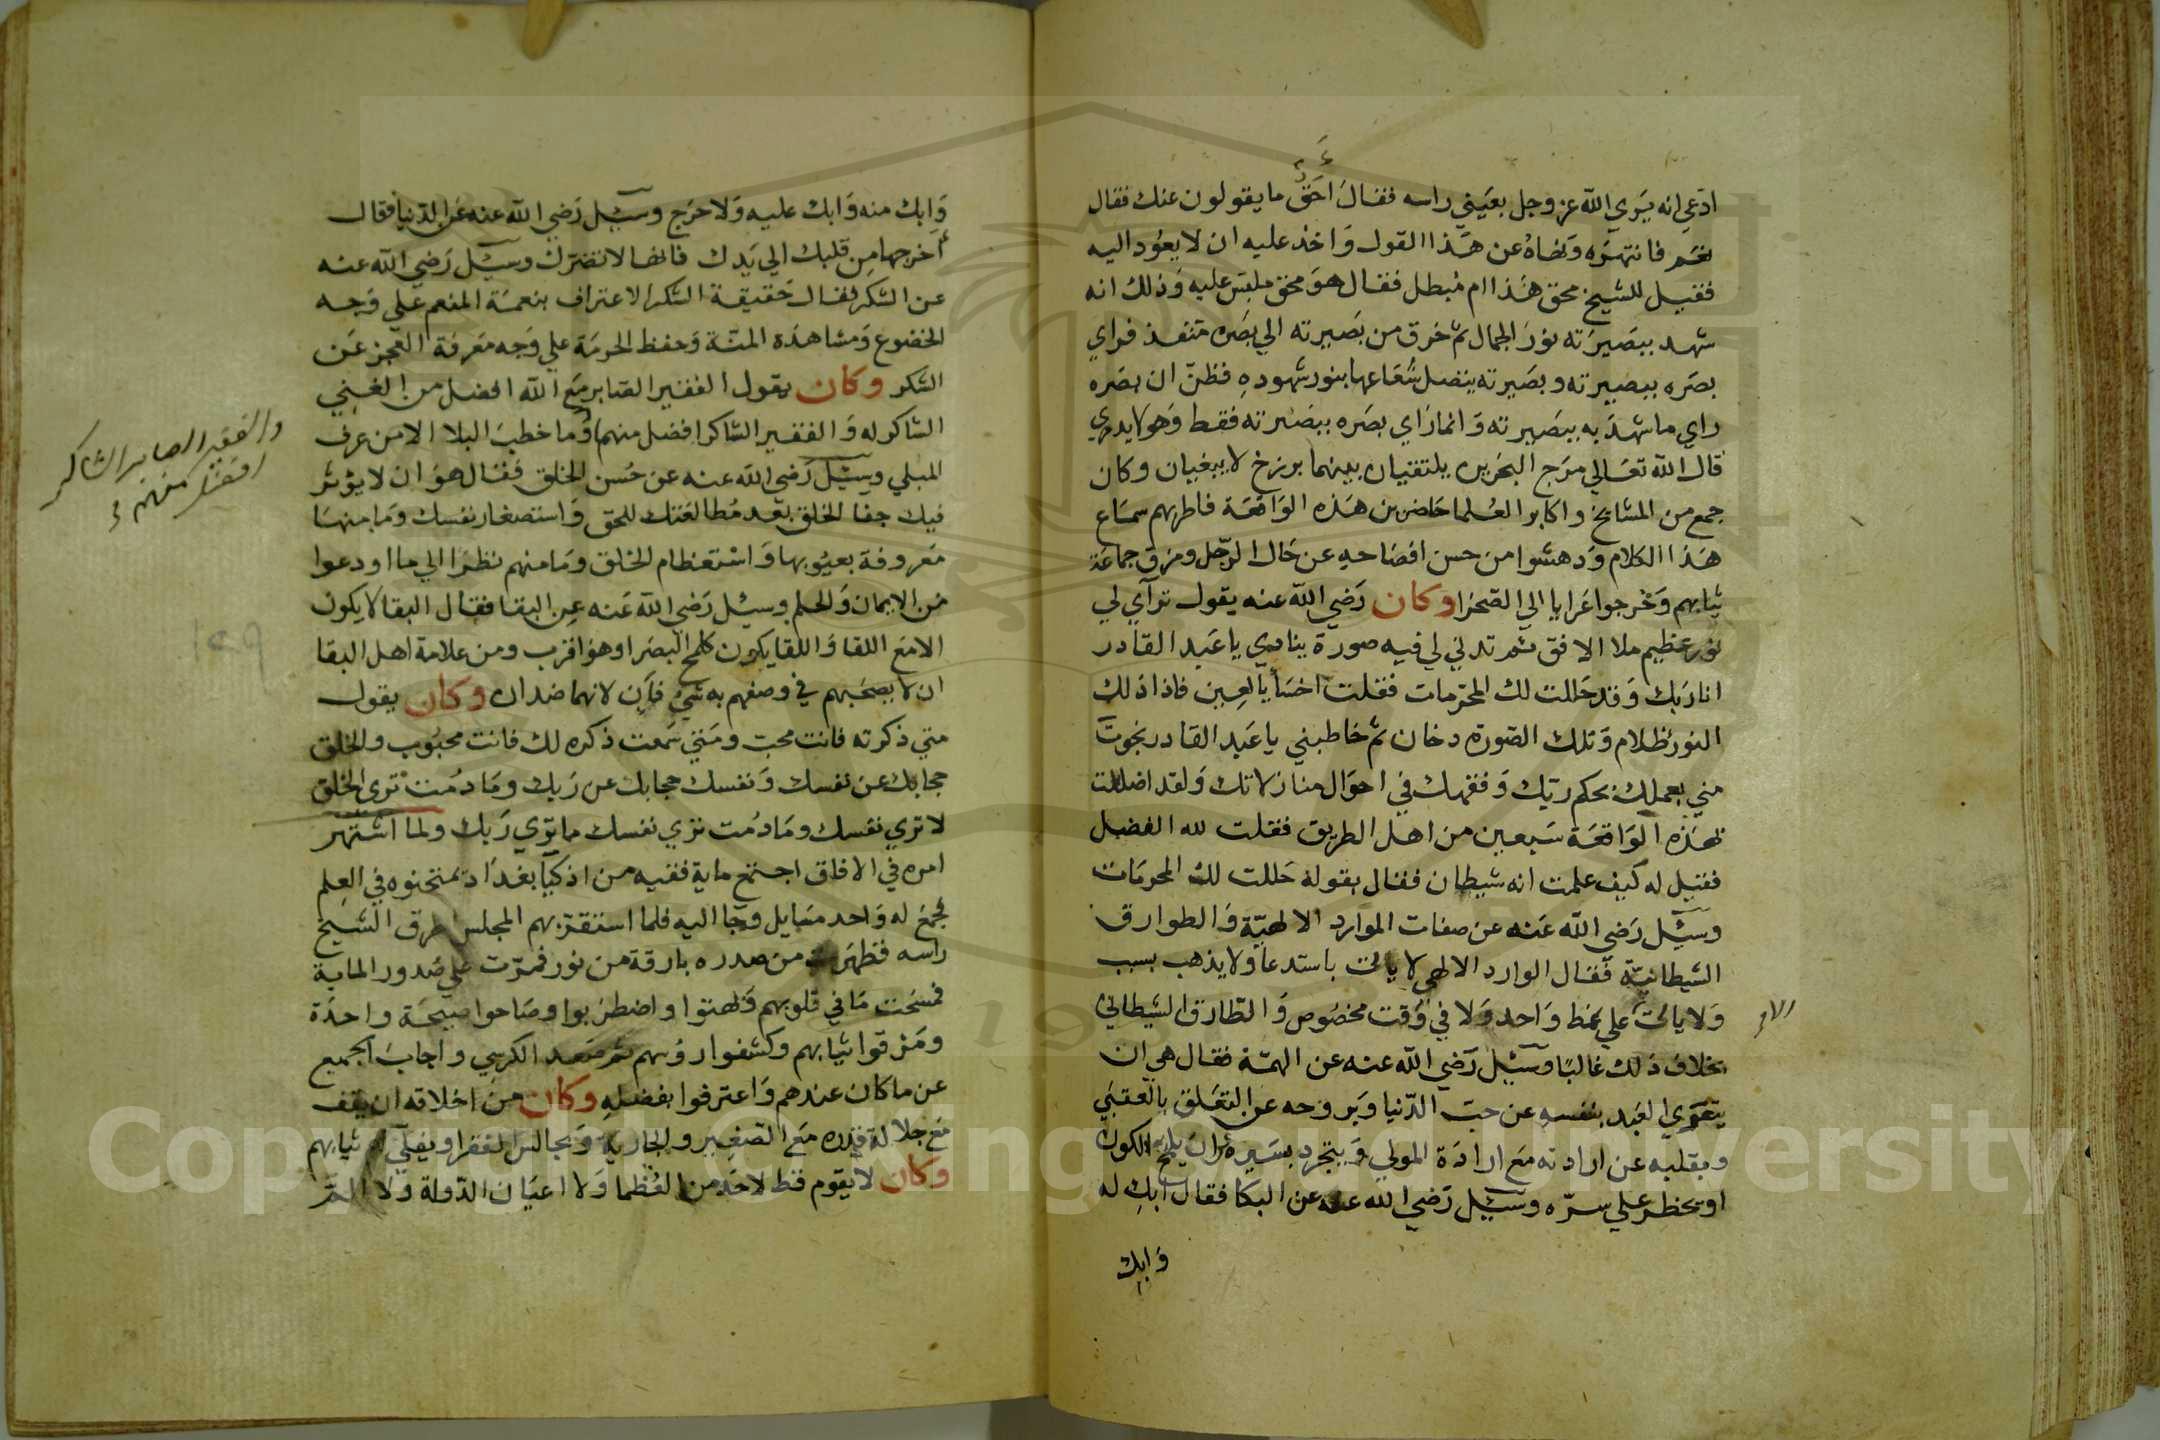 ادعي انه يري الله عز وجل بعيني راسه فقال احق ما يقولون عنك فقال
نعم فانتهره ونهاه عن هذا القول واخذ عليه ان لا يعود اليه
فقيل للشيخ محق هذا ام مبطل فقال هو محق ملبس عليه وذلك انه
شهد ببصيرته نور الجمال ثم خرق من بصيرته الي بصره منفذ فراي
بصره ببصيرته وبصيرته يتصل شعاعها بنور شهوده فظن ان بصره
راي ما شهد به ببصيرته وانما راي بصره ببصيرته فقط وهو لا يدري
قال الله تعالي مرج البحرين يلتقيان بينهما برزخ لا يبغيان وكان
جمع من المشايخ واكابر العلما حاضرين هذه الواقعة فاطربهم سماع
هذا الكلام ودهشوا من حسن افصاحه عن حال الرجل ومزق جماعة
ثيابهم وخرجوا عرايا الي الصحرا وكان رضي الله عنه يقول تراآي لي
نور عظيم ملا الافق ثم تدلي لي فيه صورة ينادي يا عبد القادر
انا ربك وقد حللت لك المحرمات فقلت اخسا يا لعين فاذا ذلك
النور ظلام وتلك الصورة دخان ثم خاطبني يا عبد القادر نجوت
مني بعملك بحكم ربك وفقهك في احوال منازلاتك ولقد اضللت
بهذه الواقعة سبعين من اهل الطريق فقلت لله الفضل
فقيل له كيف علمت انه شيطان فقال بقوله حللت لك المحرمات
وسئيل رضي الله عنه عن صفات الموارد الالهية والطوارق
الشيطانية فقال الوارد الالهي لا ياتي باستدعا ولا يذهب بسبب
ولا ياتي علي نمط واحد ولا في وقت مخصوص والطارق الشيطاني
بخلاف ذلك غالبا وسئيل رضي الله عنه عن الهمة فقال هي ان
يتعري العبد بنفسه عن حب الدنيا وبروحه عن التعلق بالعقبي
وبقلبه عن ارادته مع ارادة المولي ويتجرد بسره عن ان يلمح الكون
او يخطر علي سره وسئيل رضي الله عنه عن البكا فقال ابك له
وابك
الا
وابك منه وابك عليه ولا حرج وسئيل رضي الله عنه عن الدنيا فقال
اخرجها من قلبك الي يدك فانها لا تضرك وسئيل رضي الله عنه
عن الشكر فقال حقيقة الشكر الاعتراف بنعمة المنعم علي وجه
الخضوع ومشاهدة المنة وحفظ الحرمة علي وجه معرفة العجز عن
الشكر وكان يقول الفقير الصابر مع الله افضل من الغني
الشاكر له والفقير الشاكر افضل منهما وما خطب البلا الا من عرف
المبلي وسئيل رضي الله عنه عن حسن الخلق فقال هو ان لا يؤثر
فيك جفا الخلق بعد مطالعتك للحق واستصغار نفسك وما منها
معروفة بعيوبها واستعظام الخلق وما منهم نظرا الي ما اودعوا
من الايمان والحلم وسئل رضي الله عنه عن البقا فقال البقا لا يكون
الا مع اللقا واللقا يكون كلمح البصر او هو اقرب ومن علامة اهل البقا
ان لا يصحبهم في وصفهم به شي فان لانهما ضدان وكان يقول
متي ذكرته فانت محب ومتي سمعت ذكره لك فانت محبوب والخلق
حجابك عن نفسك ونفسك حجابك عن ربك وما دمت تري الخلق
لا تري نفسك وما دمت تري نفسك ما تري ربك ولما اشتهر
امره في الافاق اجتمع ماية فقيه من اذكيا بغداد يمتحنوه في العلم
فجمع له واحد مسايل وجا اليه فلما استقر بهم المجلس اطرق الشيخ
راسه فظهرت من صدره بارقة من نور فمرت علي صدور الماية
فمسحت ما في قلوبهم فبهتوا واضطربوا وصاحوا صيحة واحدة
ومزقوا ثيابهم وكشفوا روسهم ثم صعد الكرسي واجاب الجميع
عن ما كان عندهم واعترفوا بفضله وكان من اخلاقه ان يقف
مع جلالة قدره مع الصغير والجارية ويجالس الفقرا ويفلي ثيابهم
وكان لا يقوم قط لاحد من العظما ولا اعيان الدولة ولا الم
والفقير الصابر الشاكر
افضل منهم